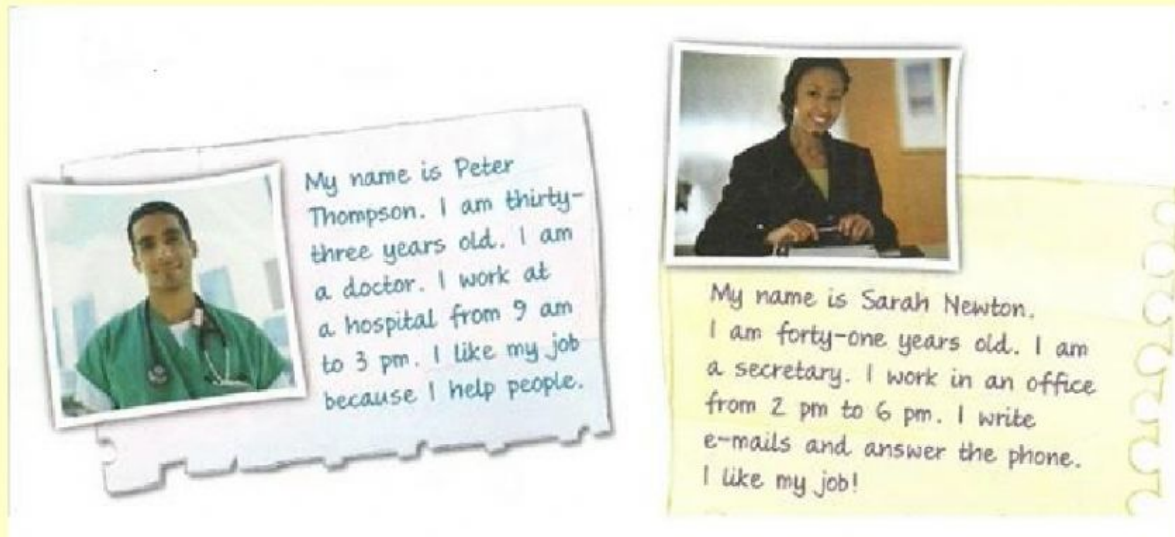 My name is Peter
Thompson. I am thirty-
three years old. I am
a doctor. I work at
a hospital from 9 am
to 3 pm. I like my job
because I help people.
My name is Sarah Newton.
I am forty-one years old. I am
a secretary. I work in an office
from 2 pm to 6 pm. I write
e-mails and answer the phone.
I like my job!